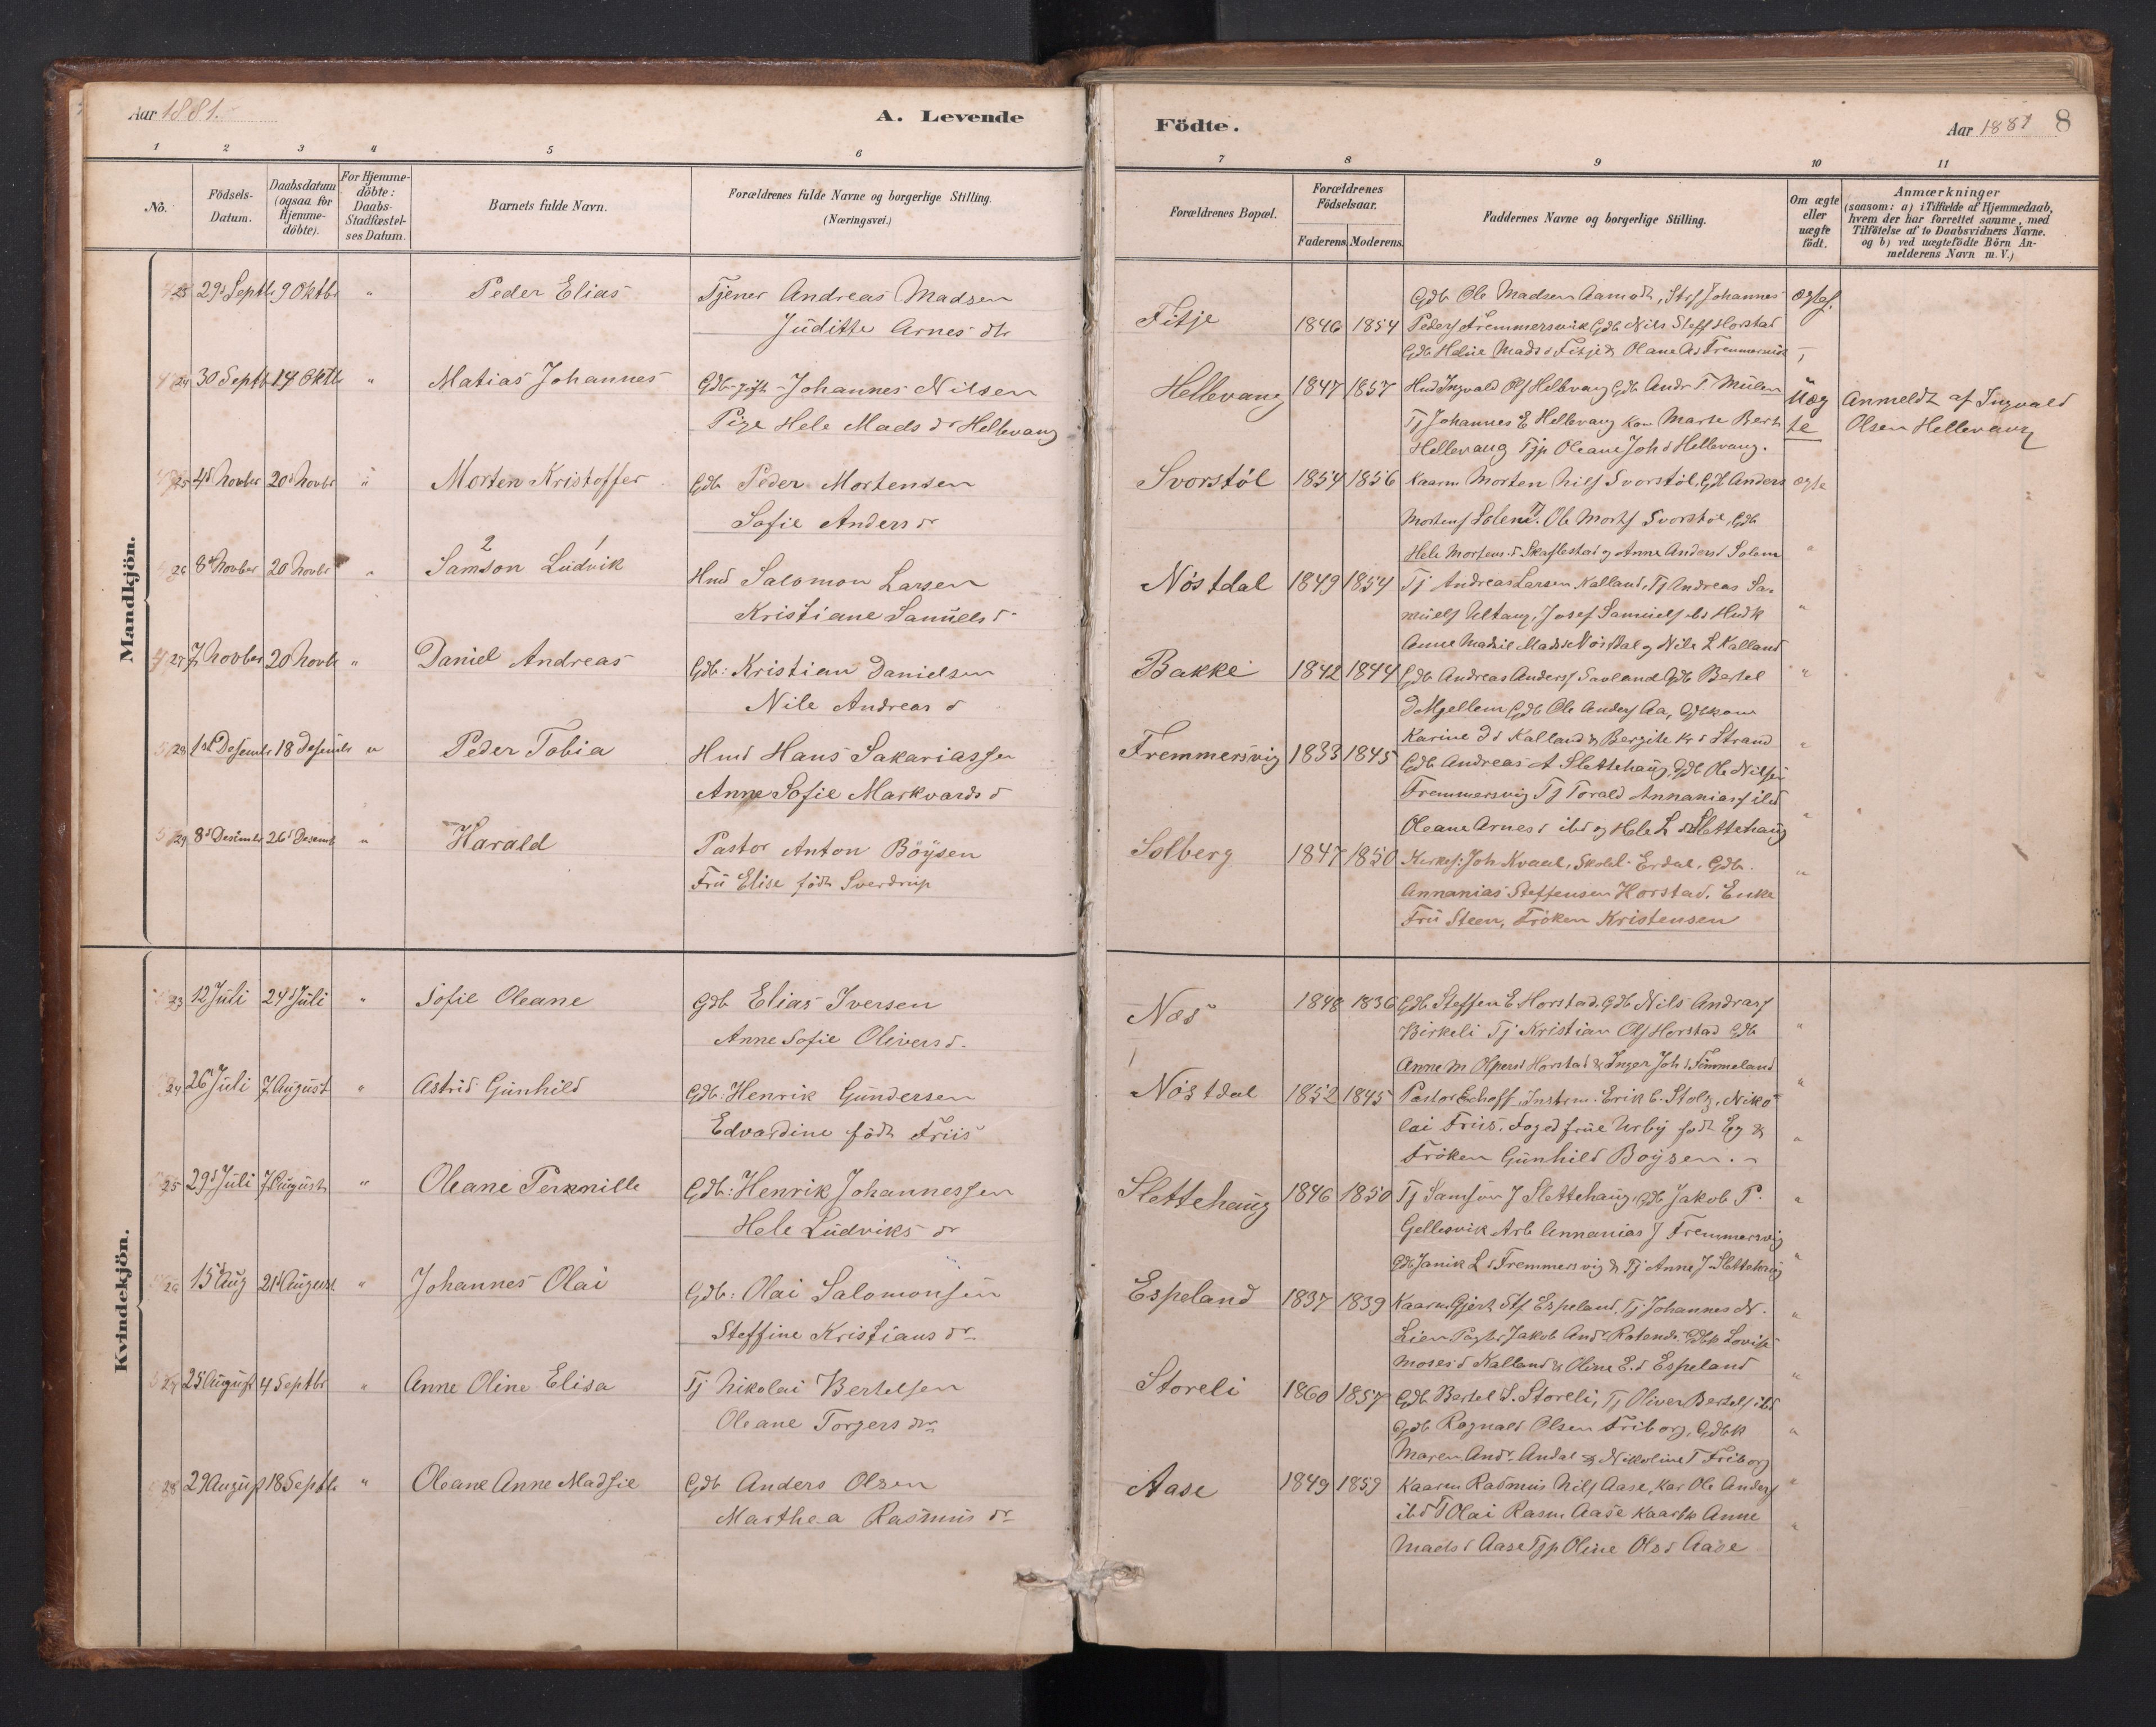 Aar 1881.
A. Levende
Födte.
Aar 1881 8
1 2 3 4 5 6 7 8 9 10 11
No.
Födsels-Datum.
Daabsdatum (ogsaa for Hjemme-döbte).
For Hjemme-döbte: Daabs-Stadfæstel-ses Datum.
Barnets fulde Navn.
Forældrenes fulde Navne og borgerlige Stilling.
(Næringsvei.)
Forældrenes Bopæl.
Forældrenes Födselsaar.
Faderens Moderens
Faddernes Navne og borgerlige Stilling.
Om ægte eller uægte födt.
Anmærkninger
(saasom: a) i Tilfælde af Hjemmedaab,
hvem der har forrettet samme, med
Tilföielse af to Daabsvidners Navne.
og b) ved uægtefödte Börn An-
melderens Navn m. V.)
Mandkjön.
23 29d Septb 9 Oktbr " Peder Elias Tjener Andreas Madsen
Juditte Arnes dtr
Fitje 1846 1854 Gdb Ole Madsen Aamodt, Johannes ægtef.
Peders Fremmersvik Gdb Nils Steff Horstad
Gdb Heline Mads d Fitje & Olane Fremmersvik
24 30 Septb 14 Oktb " Matias Johannes Gdb-gift-Johannes Nilsen
Pige Hele Mads dr Hellevang
Hellevang 1847 1857 Hmd Ingvald Ols Hellevang Gdb Andr T. Mülen Uæg
Tj Johannes E Hellevang Kone Marte Berth te
Hellevang Tjp Oleane Joh d Hellevang.
Anmeldt af Ingvald
Olsen Hellevang
25 4d Novber 20d Novbr " Morten Kristoffer Gdb Peder Mortensen
Sofie Anders dr
Svorstöl 1854 1856 Kaarm Morten Nils Svorstöl, Gdb Anders ægte
Mortens Solem. Ole Morts Svorstöl, Gdb
Hele Mortens d Skaflestad og Anne Anders d Solem "
26 8d Novber 20 Novbr " Samson Ludvik 2 1 Hmd Salomon Larsen
Kristiane Samuels d
Nöstdal 1849 1854 Tj Andreas Larsen Kalland, Tj Andreas Sa-
muels Ultang, Josef Samuels ibd Hmdk "
Anne Madsie Mads d Nöstdal og Nile L Kalland
27 7 Novber 20 Novb " Daniel Andreas Gdb: Kristian Danielsen
Nile Andreas d
Bakke 1842 1844 Gdb Andreas Anders Savland Gdb Bertel "
D Mjellem Gdb Ole Anders Aa, Gdbkone
Karine D d Kalland & Bergite Kr d Strand "
28 1st Desembr 18 Desembr " Peder Tobia Hmd Hans Sakariassen
Anne Sofie Markvards d
Fremmersvig 1833 1845 Gdb Andreas A Slettehaug, Gdb Ole Nilsen
Fremmersvig Tj Torald Annanias ibd
Oleane Arnes d ibd og Hele L d Slettehaug "
29 8d Desember 26d Desemb " Harald Pastor Anton Böysen
Frü Elise födt Sverdrup
Solberg 1847 1850 Kirkes: Joh Kvaal, Skolel. Erdal, Gdb. "
Annanias Steffensen Horstad. Enke
Frü Steen, Fröken Kristensen
Kvindekjön.
23 12 Juli 24d Juli " Sofie Oleane Gdb Elias Iversen
Anne Sofie Olivers d.
Næs 1848 1836 Gdb Steffen E Horstad. Gdb Nils Andreas
Birkeli Tj Kristian Ols Horstad Gdb "
Anne M Horstad & Inger Joh d Tömmeland
24 26 Juli 7 August " Astrid Gunhild Gdb: Henrik Gundersen
Edvardine födt Friis
Nöstdal 1852 1845 Pastor Echoff, Instrm. Erik E. Stolz, Niko- "
lai Friis. Fogedfrue Urby födt Eg & "
Fröken Gunhild Böysen.
25 29d Juli 7 August " Oleane Pernille Gdb: Henrik Johannessen
Hele Ludviks dr
Slettehaug 1846 1850 Tj Samson J Slettehaug, Gdb Jakob P. "
Gellesvik Arb Annanias J Fremmersvig
Gdb Janik L d Fremmersvig & Tj Anne J Slettehaug "
26 15 Aug 21d August " Johannes Olai Gdb: Olai Salomonsen
Steffine Kristians dr
Espeland 1837 1839 Kaarm Gjert Stf Espeland. Tj Johannes N. "
Lien Jakob And Gdbk Lovise
Moses d Kalland & Oline E. d Espeland
27 25 August 4 Septbr " Anne Oline Elisa Tj Nikolai Bertelsen
Oleane Torgers dtr
Storeli 1860 1857 Gdb Bertel S. Storeli, Tj Oliver Bertels ibd "
Gdb Ragnald Olsen Friborg, Gdbk "
Maren Andr. Andal & Nikoline T Friborg
28 29 August 18 Septb " Oleane Anne Madsie Gdb Anders Olsen
Marthea Rasmus dr
Aase 1849 1859 Kaarm Rasmus Nils Aase, Kar Ole Anders "
ibd T Olai Rasm Aase Kaarbk Anne "
Mads d Aase Tjp Oline Ols d Aase